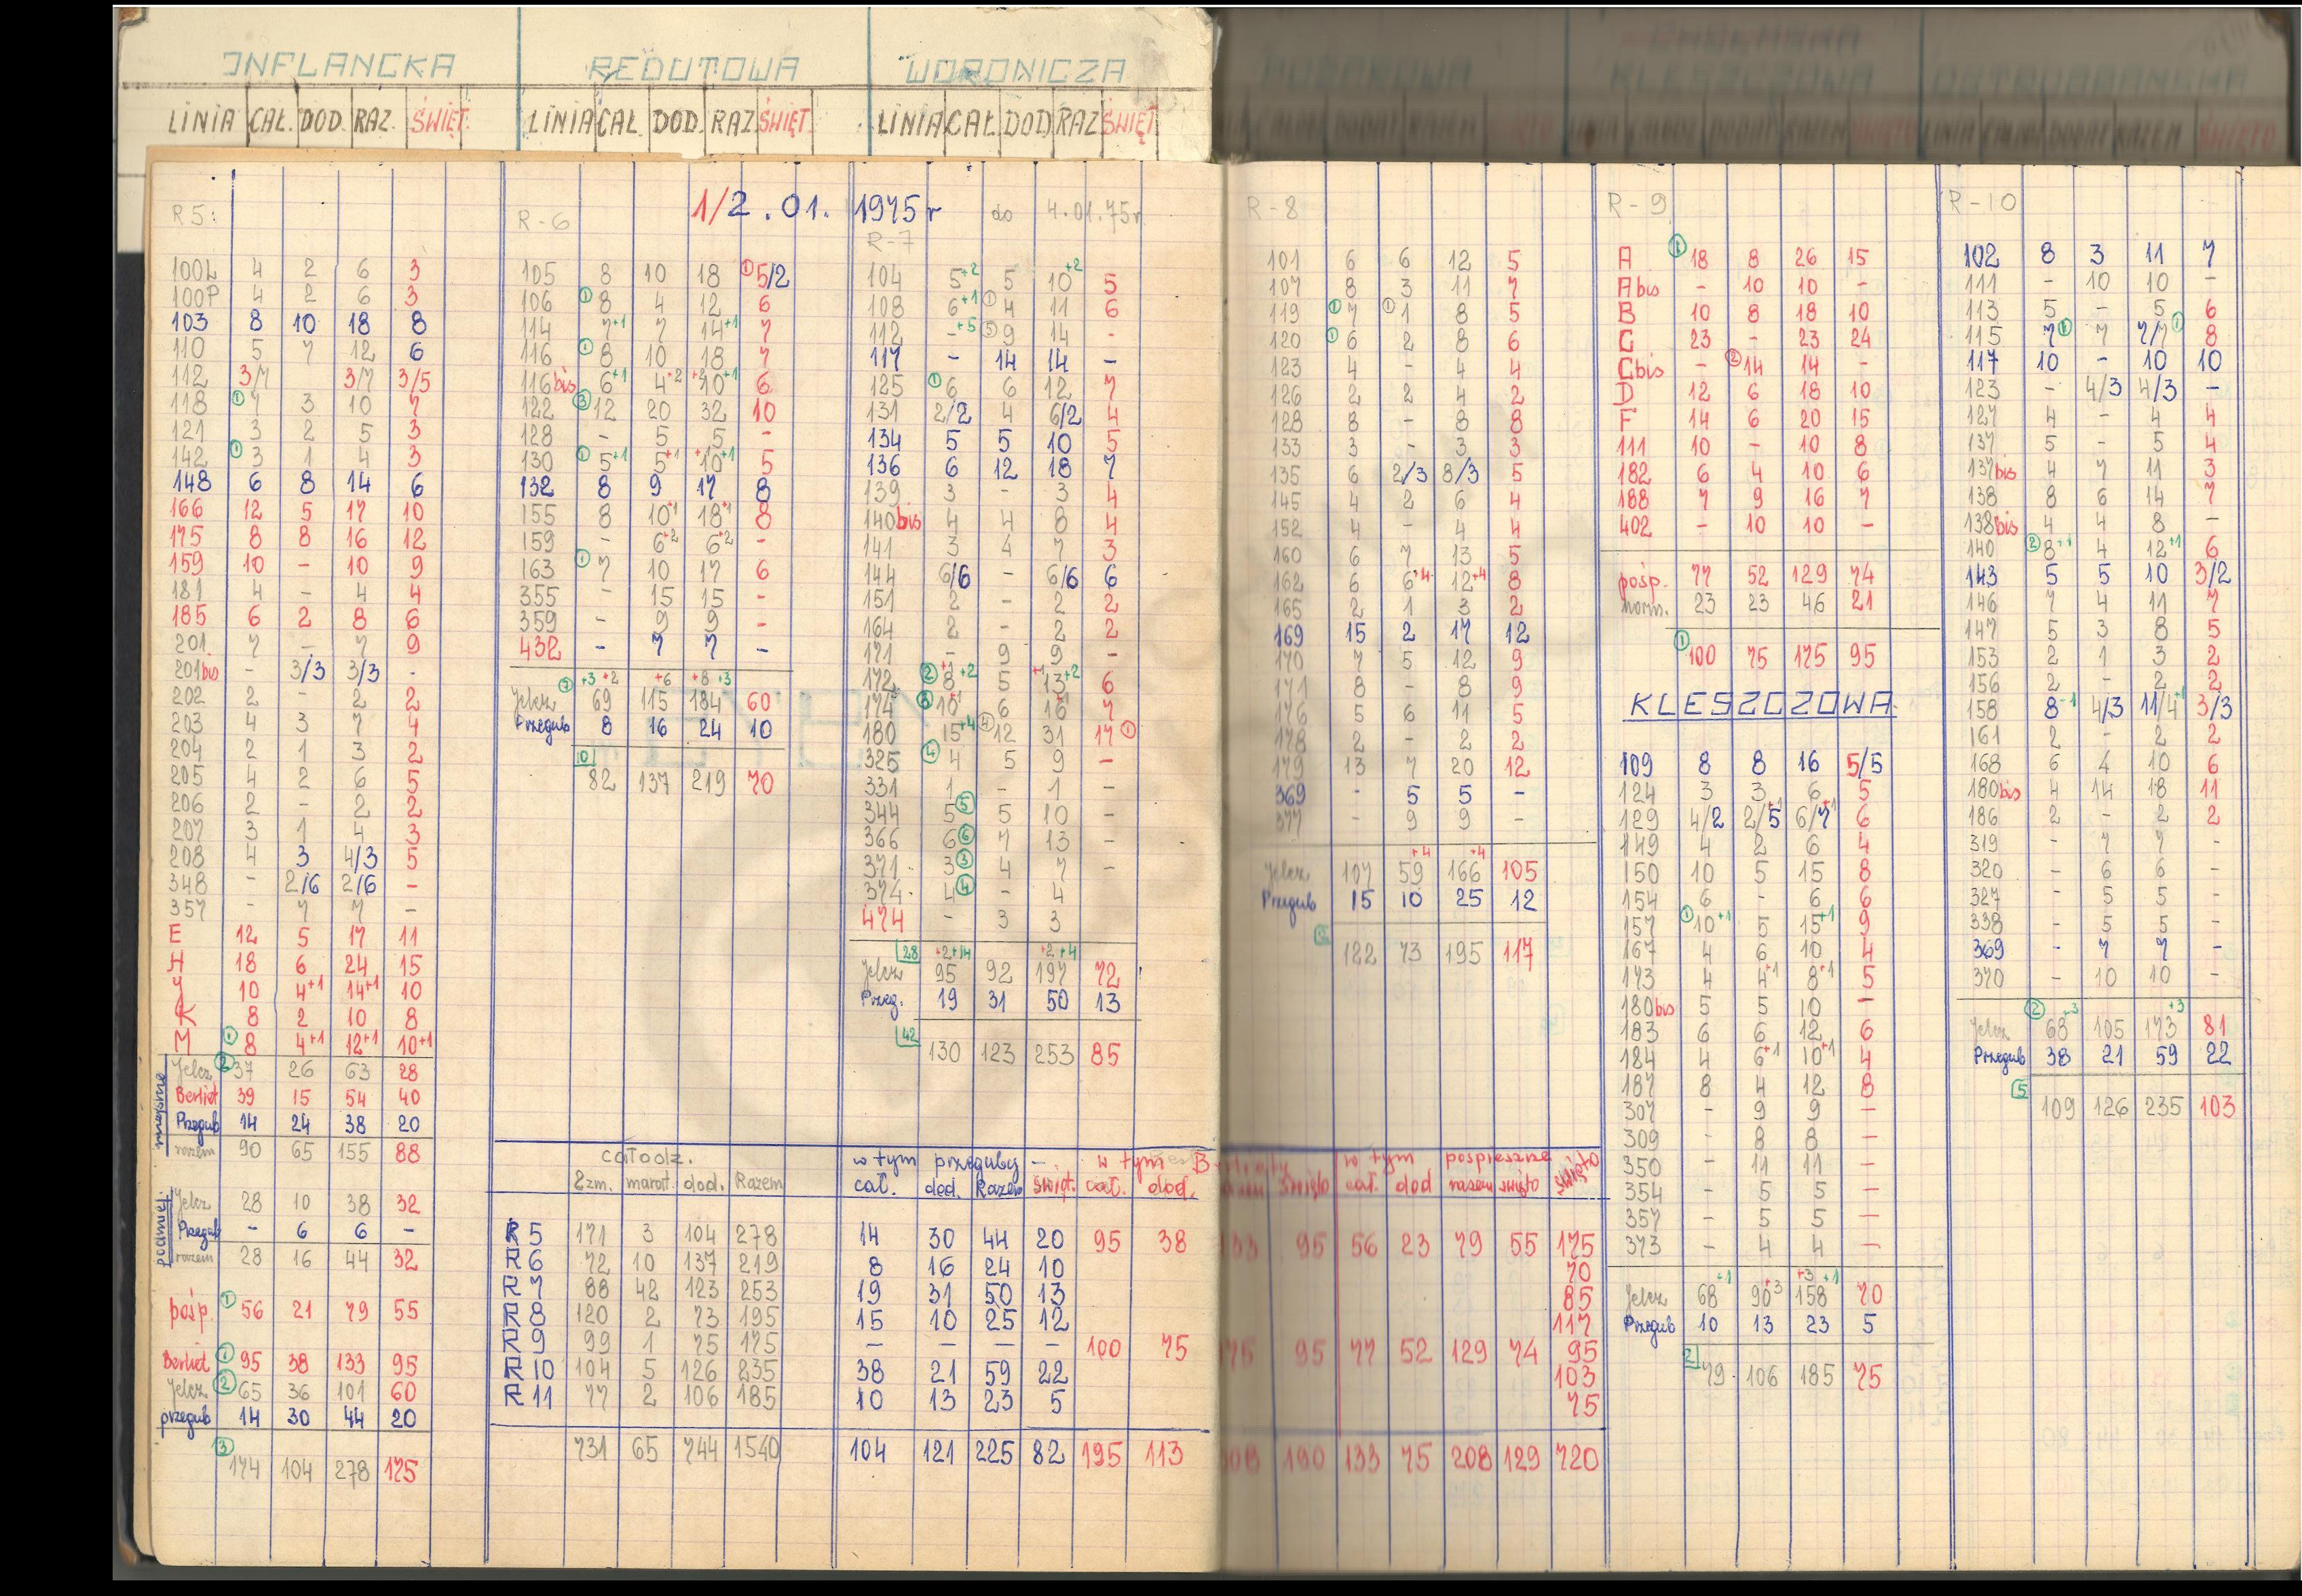 INFLANCKA REDUTOWA WORONICZA
KLESZCZOWA OSTROBRAMSKA
LINIA CAŁ. DOD. RAZ. ŚWIĘT. LINIA CAŁ. DOD. RAZ ŚWIĘT. LINIA CAŁ. DOD RAZ ŚWIĘT
1/2.01. 1975 r do 4.01.75 r
R5:
100L 4 2 6 3
100P 4 2 6 3
103 8 10 18 8
110 5 7 12 6
112 3/7 3/7 3/5
118 ① 7 3 10 7
121 3 2 5 3
142 ① 3 1 4 3
148 6 8 14 6
166 12 5 17 10
175 8 8 16 12
159 10 - 10 9
181 4 - 4 4
185 6 2 8 6
201 7 - 7 9
201bis - 3/3 3/3 -
202 2 - 2 2
203 4 3 7 4
204 2 1 3 2
205 4 2 6 5
206 2 - 2 2
207 3 1 4 3
208 4 3 4/3 5
348 - 2/6 2/6 -
357 - 7 7 -
E 12 5 17 11
H 18 6 24 15
J 10 4+1 14+1 10
K 8 2 10 8
M ① 8 4+1 12+1 10+1
miejskie
Jelcz ② 37 26 63 28
Berliet 39 15 54 40
Przegub 14 24 38 20
razem 90 65 155 88
podmiej
Jelcz 28 10 38 32
Przegub - 6 6 -
razem 28 16 44 32
pośp. ① 56 21 79 55
Berliet ① 95 38 133 95
Jelcz ② 65 36 101 60
przegub 14 30 44 20
③ 174 104 278 175
R-6
105 8 10 18 ① 5/2
106 ① 8 4 12 6
114 7+1 7 14+1 7
116 ① 8 10 18 7
116bis 6+1 4+2 +2 10+1 6
122 ③ 12 20 32 10
128 - 5 5 -
130 ① 5+1 5+1 +1 10+1 5
132 8 9 17 8
155 8 10+1 18+1 8
159 - 6+2 6+2 -
163 ① 7 10 17 6
355 - 15 15 -
359 - 9 9 -
432 - 7 7 -
+3 +2 +6 +8 +3
Jelcz 69 115 184 60
Przegub 8 16 24 10
10
82 137 219 70
R-7
104 5+2 5 10+2 5
108 6+1 ① 4 11 6
112 -+5 ⑤ 9 14 -
117 - 14 14 -
125 ① 6 6 12 7
131 2/2 4 6/2 4
134 5 5 10 5
136 6 12 18 7
139 3 - 3 4
140bis 4 4 8 4
141 3 4 7 3
144 6/6 - 6/6 6
151 2 - 2 2
164 2 - 2 2
171 - 9 9 -
172 ② +1 8+2 5 +1 13+2 6
174 10+1 6 16+1 7
180 15+4 ④ 12 31 17 ①
325 ④ 4 5 9 -
331 1 - 1 -
344 5 ⑤ 5 10 -
366 6 ⑥ 7 13 -
371 3 ③ 4 7 -
374 4 ④ - 4
474 - 3 3
28 +2 +14 +2 +4
Jelcz 95 92 197 72
Przeg. 19 31 50 13
42
130 123 253 85
R-8
101 6 6 12 5
107 8 3 11 7
119 ① 7 ① 1 8 5
120 ① 6 2 8 6
123 4 - 4 4
126 2 2 4 2
128 8 - 8 8
133 3 - 3 3
135 6 2/3 8/3 5
145 4 2 6 4
152 4 - 4 4
160 6 7 13 5
162 6 6+4 12+4 8
165 2 1 3 2
169 15 2 17 12
170 7 5 12 9
171 8 - 8 9
176 5 6 11 5
178 2 - 2 2
179 13 7 20 12
369 - 5 5 -
377 - 9 9 -
+4 +4
Jelcz 107 59 166 105
Przegub 15 10 25 12
122 73 195 117
R-9
A ① 18 8 26 15
Abis - 10 10 -
B 10 8 18 10
C 23 - 23 24
Cbis - ② 14 14 -
D 12 6 18 10
F 14 6 20 15
111 10 - 10 8
182 6 4 10 6
188 7 9 16 7
402 - 10 10 -
pośp. 77 52 129 74
norm. 23 23 46 21
① 100 75 175 95
KLESZCZOWA
109 8 8 16 5/5
124 3 3 6 5
129 4/2 2/5+1 6/7+1 6
149 4 2 6 4
150 10 5 15 8
154 6 - 6 6
157 ① 10+1 5 15+1 9
167 4 6 10 4
173 4 4+1 8+1 5
180bis 5 5 10 -
183 6 6 12 6
184 4 6+1 10+1 4
187 8 4 12 8
307 - 9 9 -
309 - 8 8 -
350 - 11 11 -
354 - 5 5 -
357 - 5 5 -
373 - 4 4 -
Jelcz 68+1 90+3 +3 158+1 70
Przegub 10 13 23 5
2
79 106 185 75
R-10
102 8 3 11 7
111 - 10 10 -
113 5 - 5 6
115 7 ① 7 7/7 ① 8
117 10 - 10 10
123 - 4/3 4/3 -
127 4 - 4 4
137 5 - 5 4
137bis 4 7 11 3
138 8 6 14 7
138bis 4 4 8 -
140 ② 8+1 4 12+1 6
143 5 5 10 3/2
146 7 4 11 7
147 5 3 8 5
153 2 1 3 2
156 2 - 2 2
158 8-1 4/3 11/4+1 3/3
161 2 - 2 2
168 6 4 10 6
180bis 4 14 18 11
186 2 - 2 2
319 - 7 7 -
320 - 6 6 -
327 - 5 5 -
338 - 5 5 -
369 - 7 7 -
370 - 10 10 -
Jelcz ② 68+3 105 173+3 81
Przegub 38 21 59 22
5
109 126 235 103
całodz. w tym przeguby w tym w tym pospieszne święto
2zm. marot. dod. Razem cał. dod. Razem świąt. cał. dod. święto cał. dod razem święto
R5 171 3 104 278 14 30 44 20 95 38 133 95 56 23 79 55 175
R6 72 10 137 219 8 16 24 10 70
R7 88 42 123 253 19 31 50 13 85
R8 120 2 73 195 15 10 25 12 117
R9 99 1 75 175 - - - - 100 75 175 95 77 52 129 74 95
R10 104 5 126 235 38 21 59 22 103
R11 77 2 106 185 10 13 23 5 75
731 65 744 1540 104 121 225 82 195 113 308 190 133 75 208 129 720